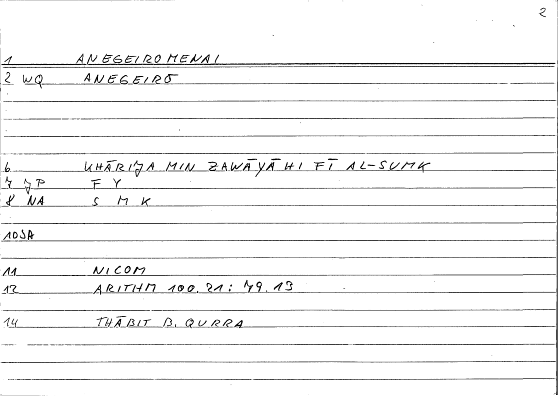 2
1 ANEGEIROMENAI
2 WQ ANEGEIRŌ
6 KHĀRIJA MIN ZAWĀYĀHI FĪ AL-SUMK
7 JP F Y
8 NA S M K
10JA
11 NICOM
12 ARITHM 100.21: 79.13
14 THĀBIT B. QURRA